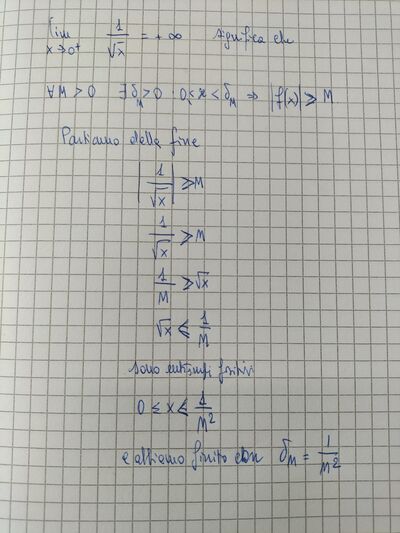 lim x→0+ 1/√x = +∞ significa che
∀M > 0 ∃ δ_M > 0 : 0 ≤ x < δ_M ⇒ |f(x)| ⩾ M
Partiamo dalla fine
|1/√x| ⩾ M
1/√x ⩾ M
1/M ⩾ √x
√x ⩽ 1/M
sono entrambi positivi
0 ≤ x ≤ 1/M²
e abbiamo finito con δ_M = 1/M²